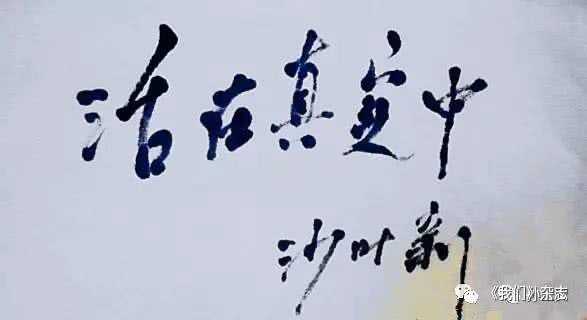 活在真实中
沙叶新
《我们》杂志